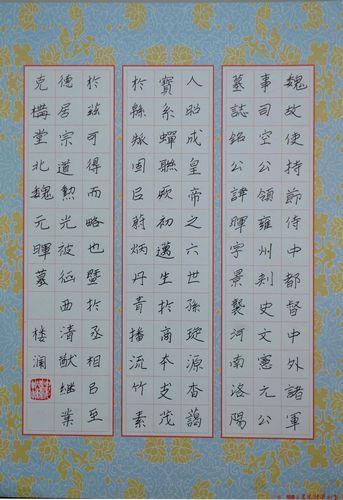 魏故使持節侍中都督中外諸軍
事司空公領雍州刺史文憲元公
墓誌銘公諱暉字景襲河南洛陽
人昭成皇帝之六世孫琁源杳藹
寶系蟬聯厥初邁生於商本支茂
於緜瓞固㠯蔚炳丹青播流竹素
於茲可得而略也暨於丞相㠯至
德居宗道勲光被征西清猷継業
克構堂北魏元暉墓 楼澜